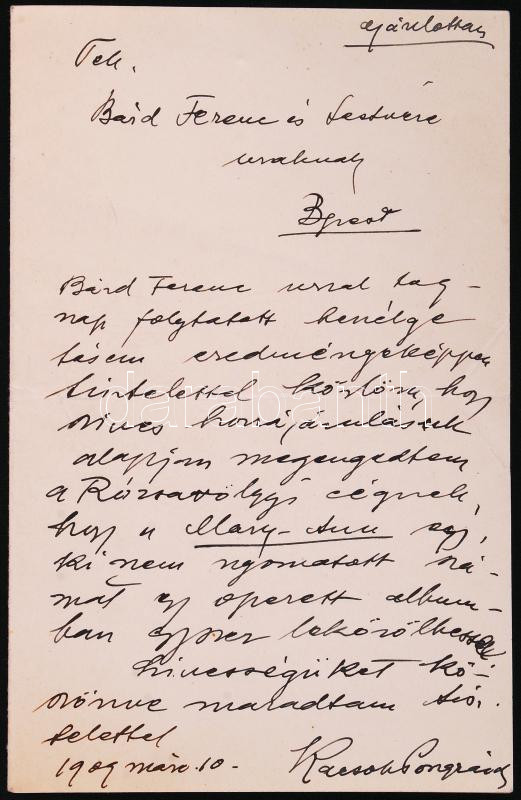 ajánlottan
Tek.
Bárd Ferenc és testvére
uraknak
Bpest
Bárd Ferenc urral teg-
nap folytatott beszélge
tésem eredményeképpen
tisztelettel közlöm, hogy
szives hozzájárulásuk
alapján megengedtem
a Rózsavölgyi cégnek,
hogy a Mary-Ann egy,
ki nem nyomatott szá-
mát egy operett album-
ban egyszer leközölhessék.
Szivességüket kö-
szönve maradtam tisz-
telettel
1909 márc. 10.
Kacsoh Pongrácz
darabanth